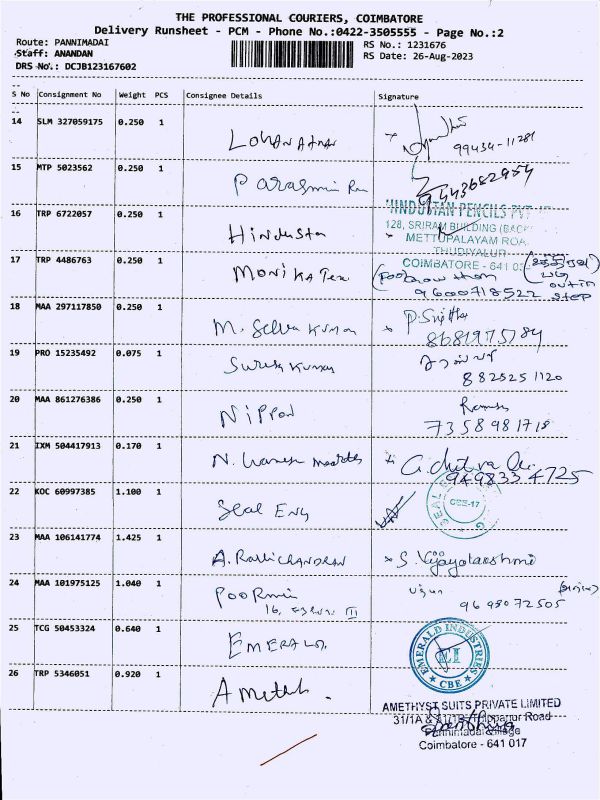 THE PROFESSIONAL COURIERS, COIMBATORE
Delivery Runsheet - PCM - Phone No.:0422-3505555 - Page No.:2
Route: PANNIMADAI
Staff: ANANDAN
DRS No.: DCJB123167602
RS No.: 1231676
RS Date: 26-Aug-2023
S No Consignment No Weight PCS Consignee Details Signature
14 SLM 327059175 0.250 1
99434-11281
15 MTP 5023562 0.250 1
9443682954
16 TRP 6722057 0.250 1 Hindustan
HINDUSTAN PENCILS PVT
128, SRIRAM BUILDING (BACK
METTUPALAYAM ROA
THUDIYALUR
COIMBATORE - 641 03
17 TRP 4486763 0.250 1 MONIKA Tex
9600718522
18 MAA 297117850 0.250 1 M. Selva Kumar
8681975784
19 PRO 15235492 0.075 1 Suresh Kumar
8825251120
20 MAA 861276386 0.250 1 Nippon
7358981718
21 IXM 504417913 0.170 1
9498334725
22 KOC 60997385 1.100 1 Seal Eng
SEAL
CBE-17
23 MAA 106141774 1.425 1 A. RAVICHANDRAN S. Vijayalakshmi
24 MAA 101975125 1.040 1
9698072505
25 TCG 50453324 0.640 1 EMERALD
EMERALD INDUSTRIES
EI
CBE
26 TRP 5346051 0.920 1
AMETHYST SUITS PRIVATE LIMITED
31/1A & Road
Pannimadai Village
Coimbatore - 641 017